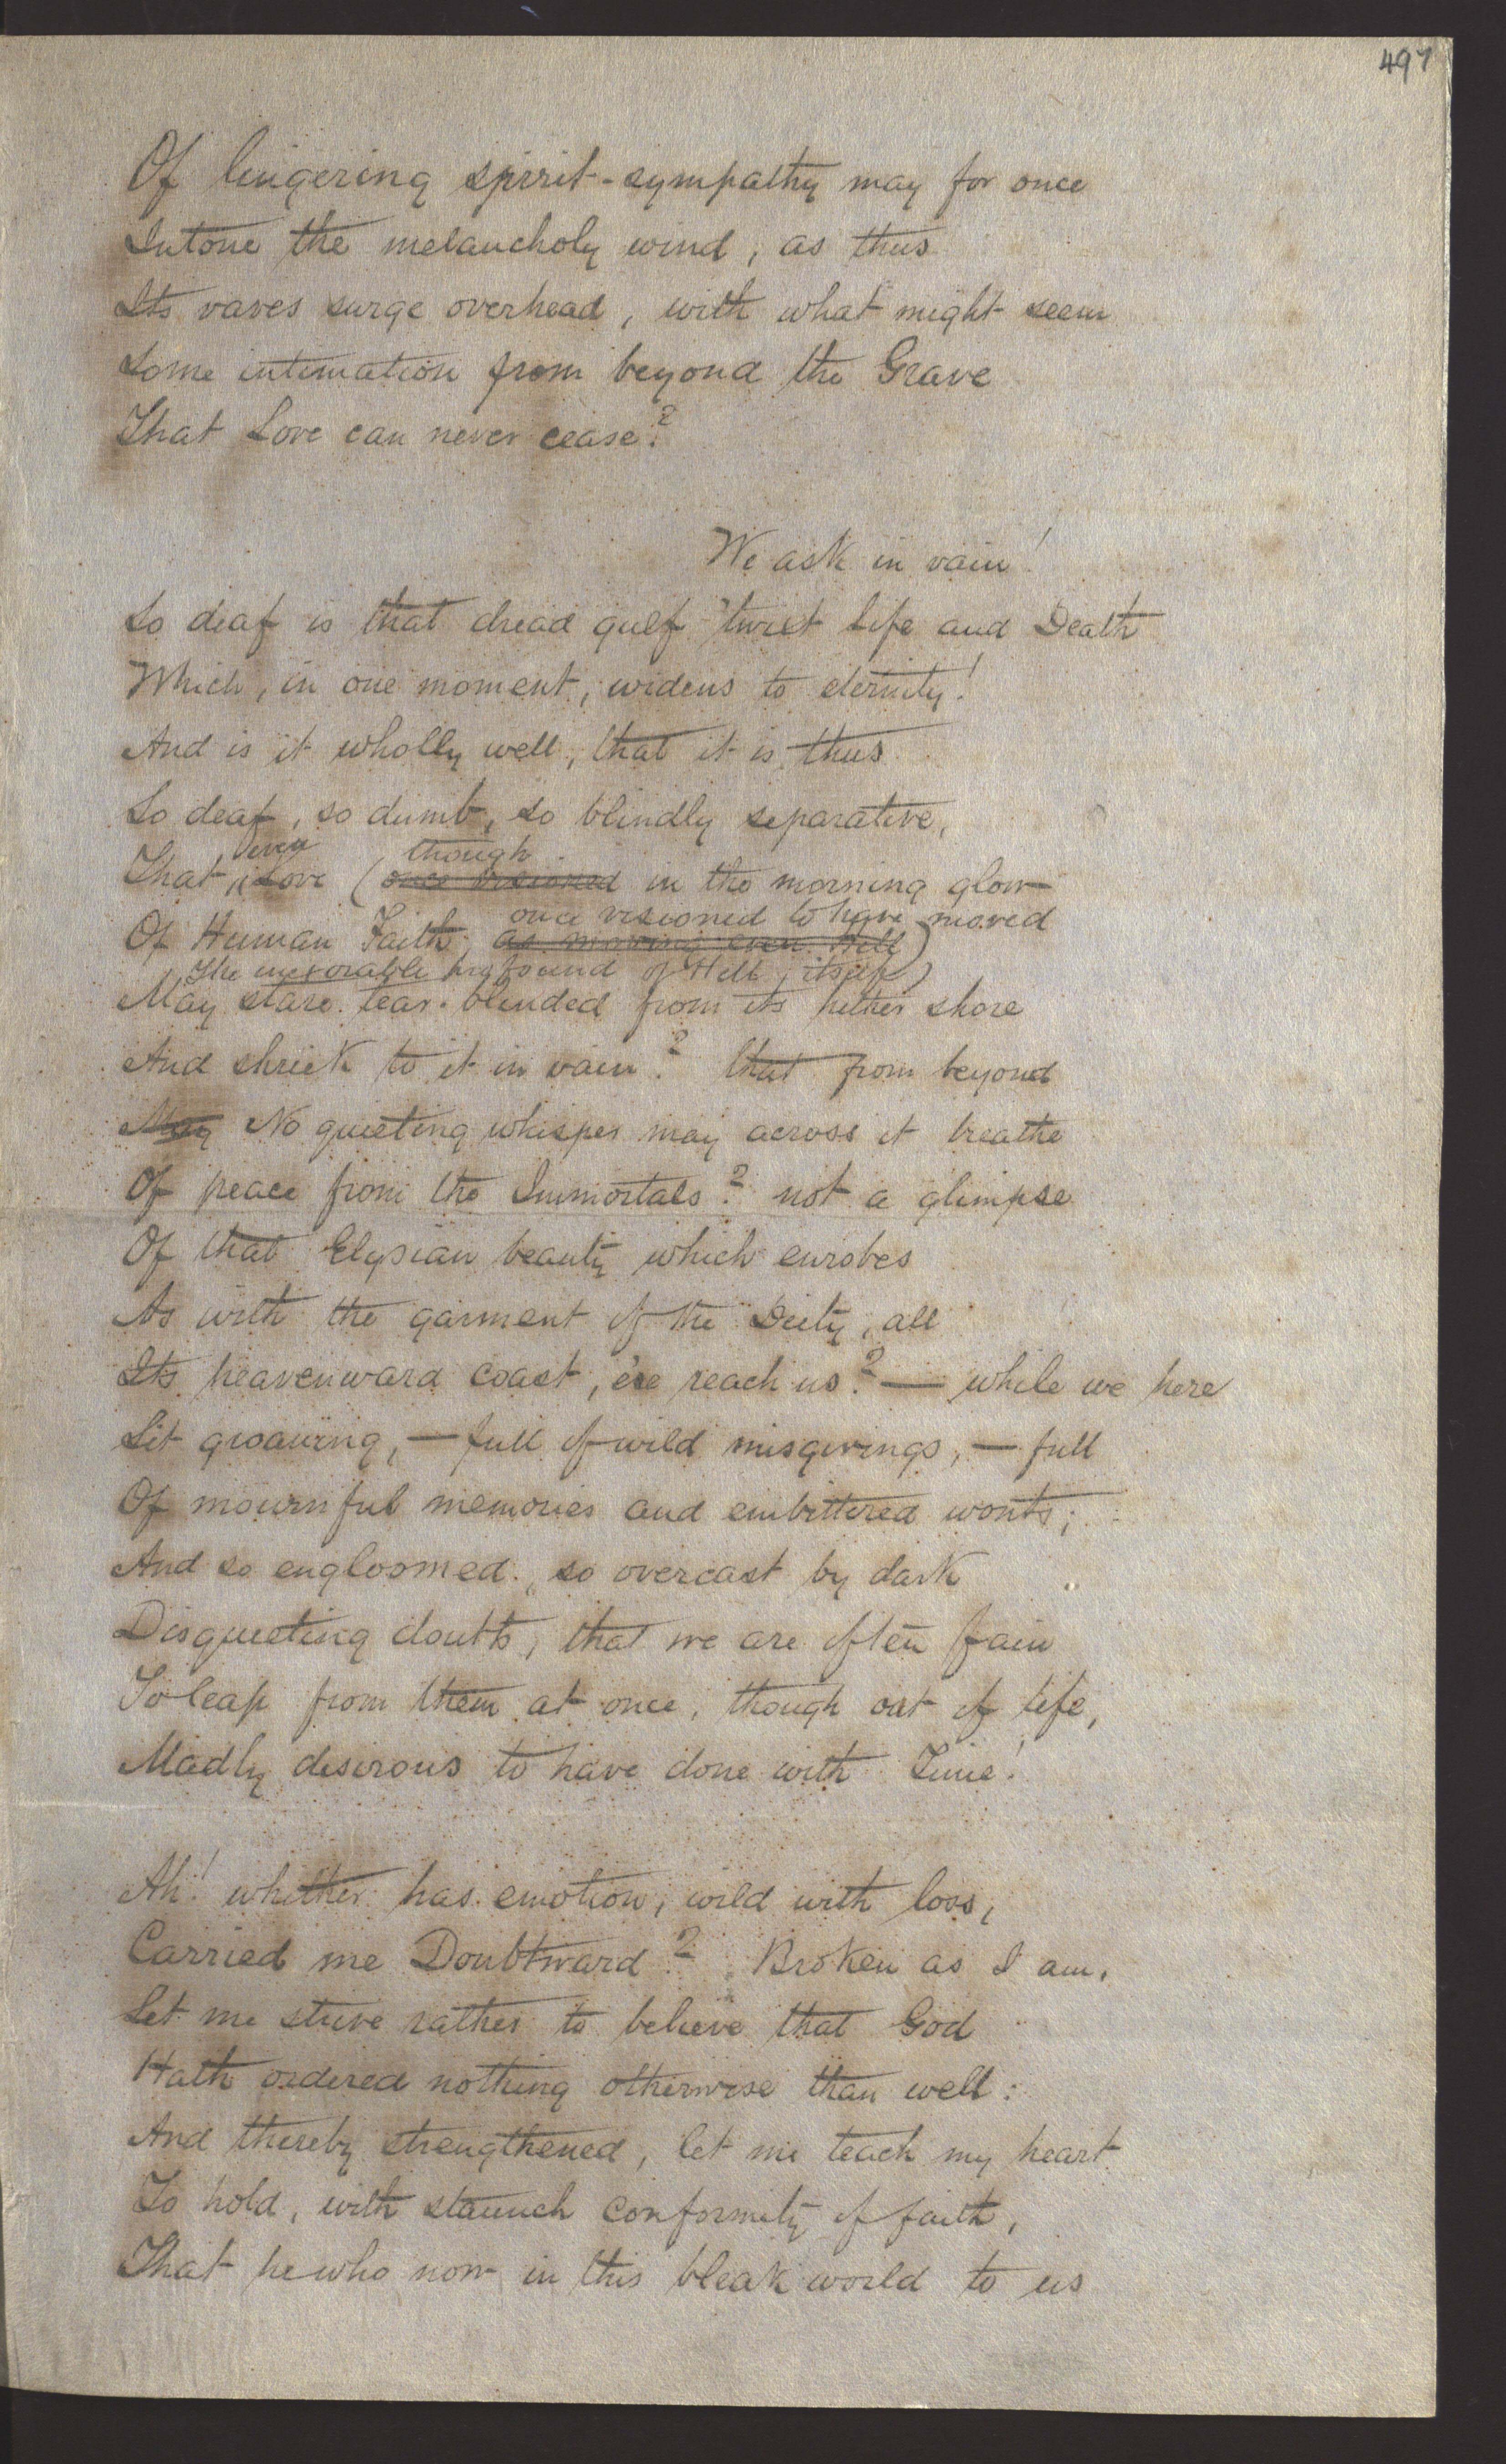 497
Of lingering spirit-sympathy may for once
Intone the melancholy wind, as thus
Its waves surge overhead, with what might seem
Some intimation from beyond the Grave
That Love can never cease?
We ask in vain!
So deaf is that dread gulf 'twixt Life and Death
Which, in one moment, widens to eternity!
And is it wholly well, that it is thus
So deaf, so dumb, so blindly separative,
even though
That Love (once visioned in the morning glow
once visioned to have moved
Of Human Faith, as moving even Hell)
The inexorable profound of Hell itself)
May stare tear-blinded from its hither shore
And shriek to it in vain? that from beyond
May No quieting whisper may across it breathe
Of peace from the Immortals? not a glimpse
Of that Elysian beauty which enrobes
As with the garment of the Deity, all
Its heavenward coast, e're reach us? — while we here
Sit groaning, — full of wild misgivings, — full
Of mournful memories and embittered wonts;
And so engloomed, so overcast by dark
Disquieting doubts, that we are often fain
To leap from them at once, though out of life,
Madly desirous to have done with Time!
Ah! whither has emotion, wild with loss,
Carried me Doubtward? Broken as I am,
Let me strive rather to believe that God
Hath ordered nothing otherwise than well:
And thereby strengthened, let me teach my heart
To hold, with staunch conformity of faith,
That he who now in this bleak world to us